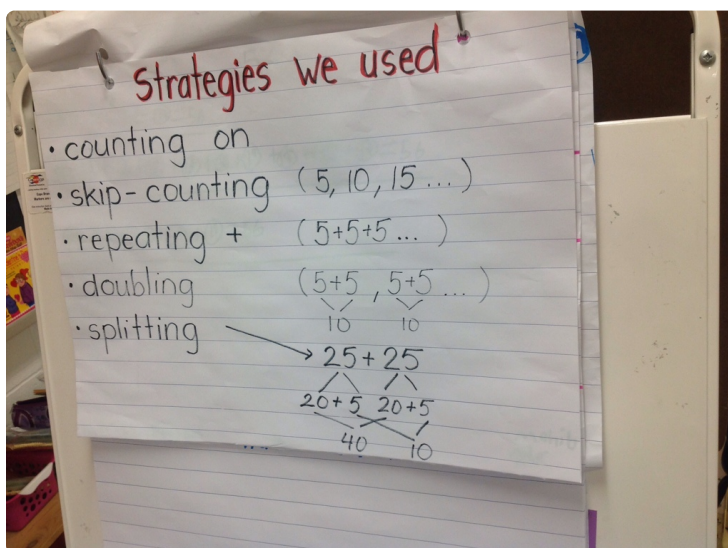 Strategies we used
• counting on
• skip-counting (5, 10, 15 ...)
• repeating + (5+5+5 ...)
• doubling (5+5, 5+5 ...)
10 10
• splitting
25 + 25
20+5 20+5
40 10